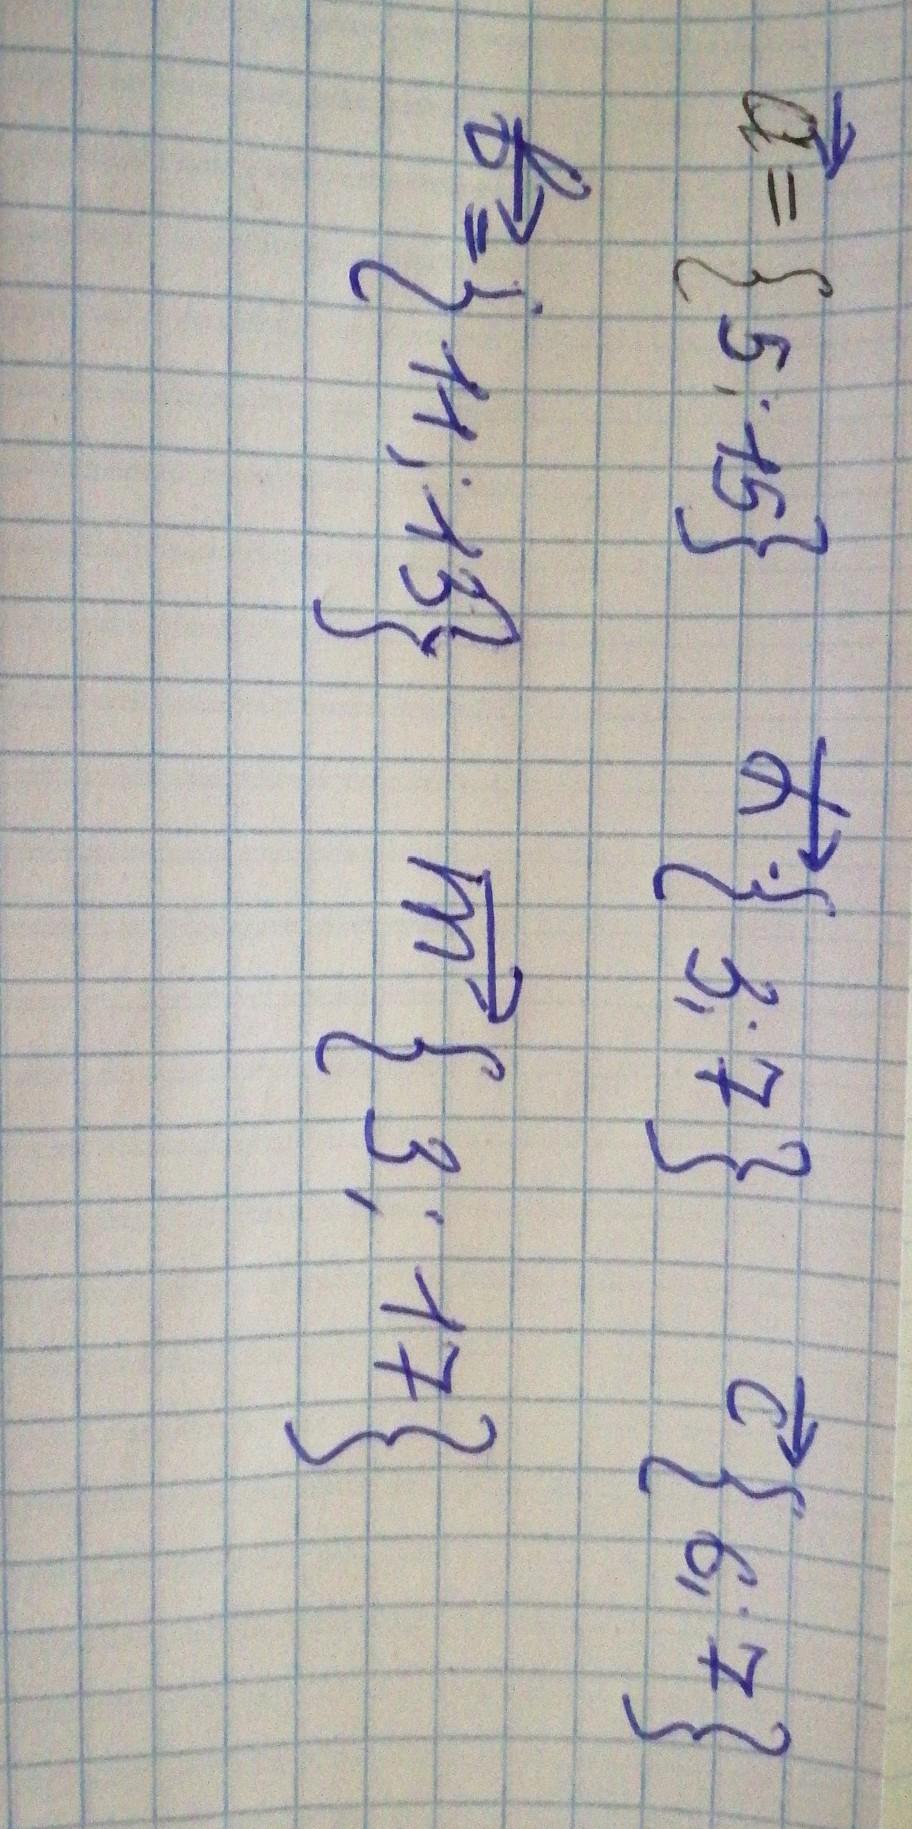 a⃗ = {5; 15} {3; 7} c⃗ {6; 7}
b⃗ = {11; 13} m⃗ {3; 17}